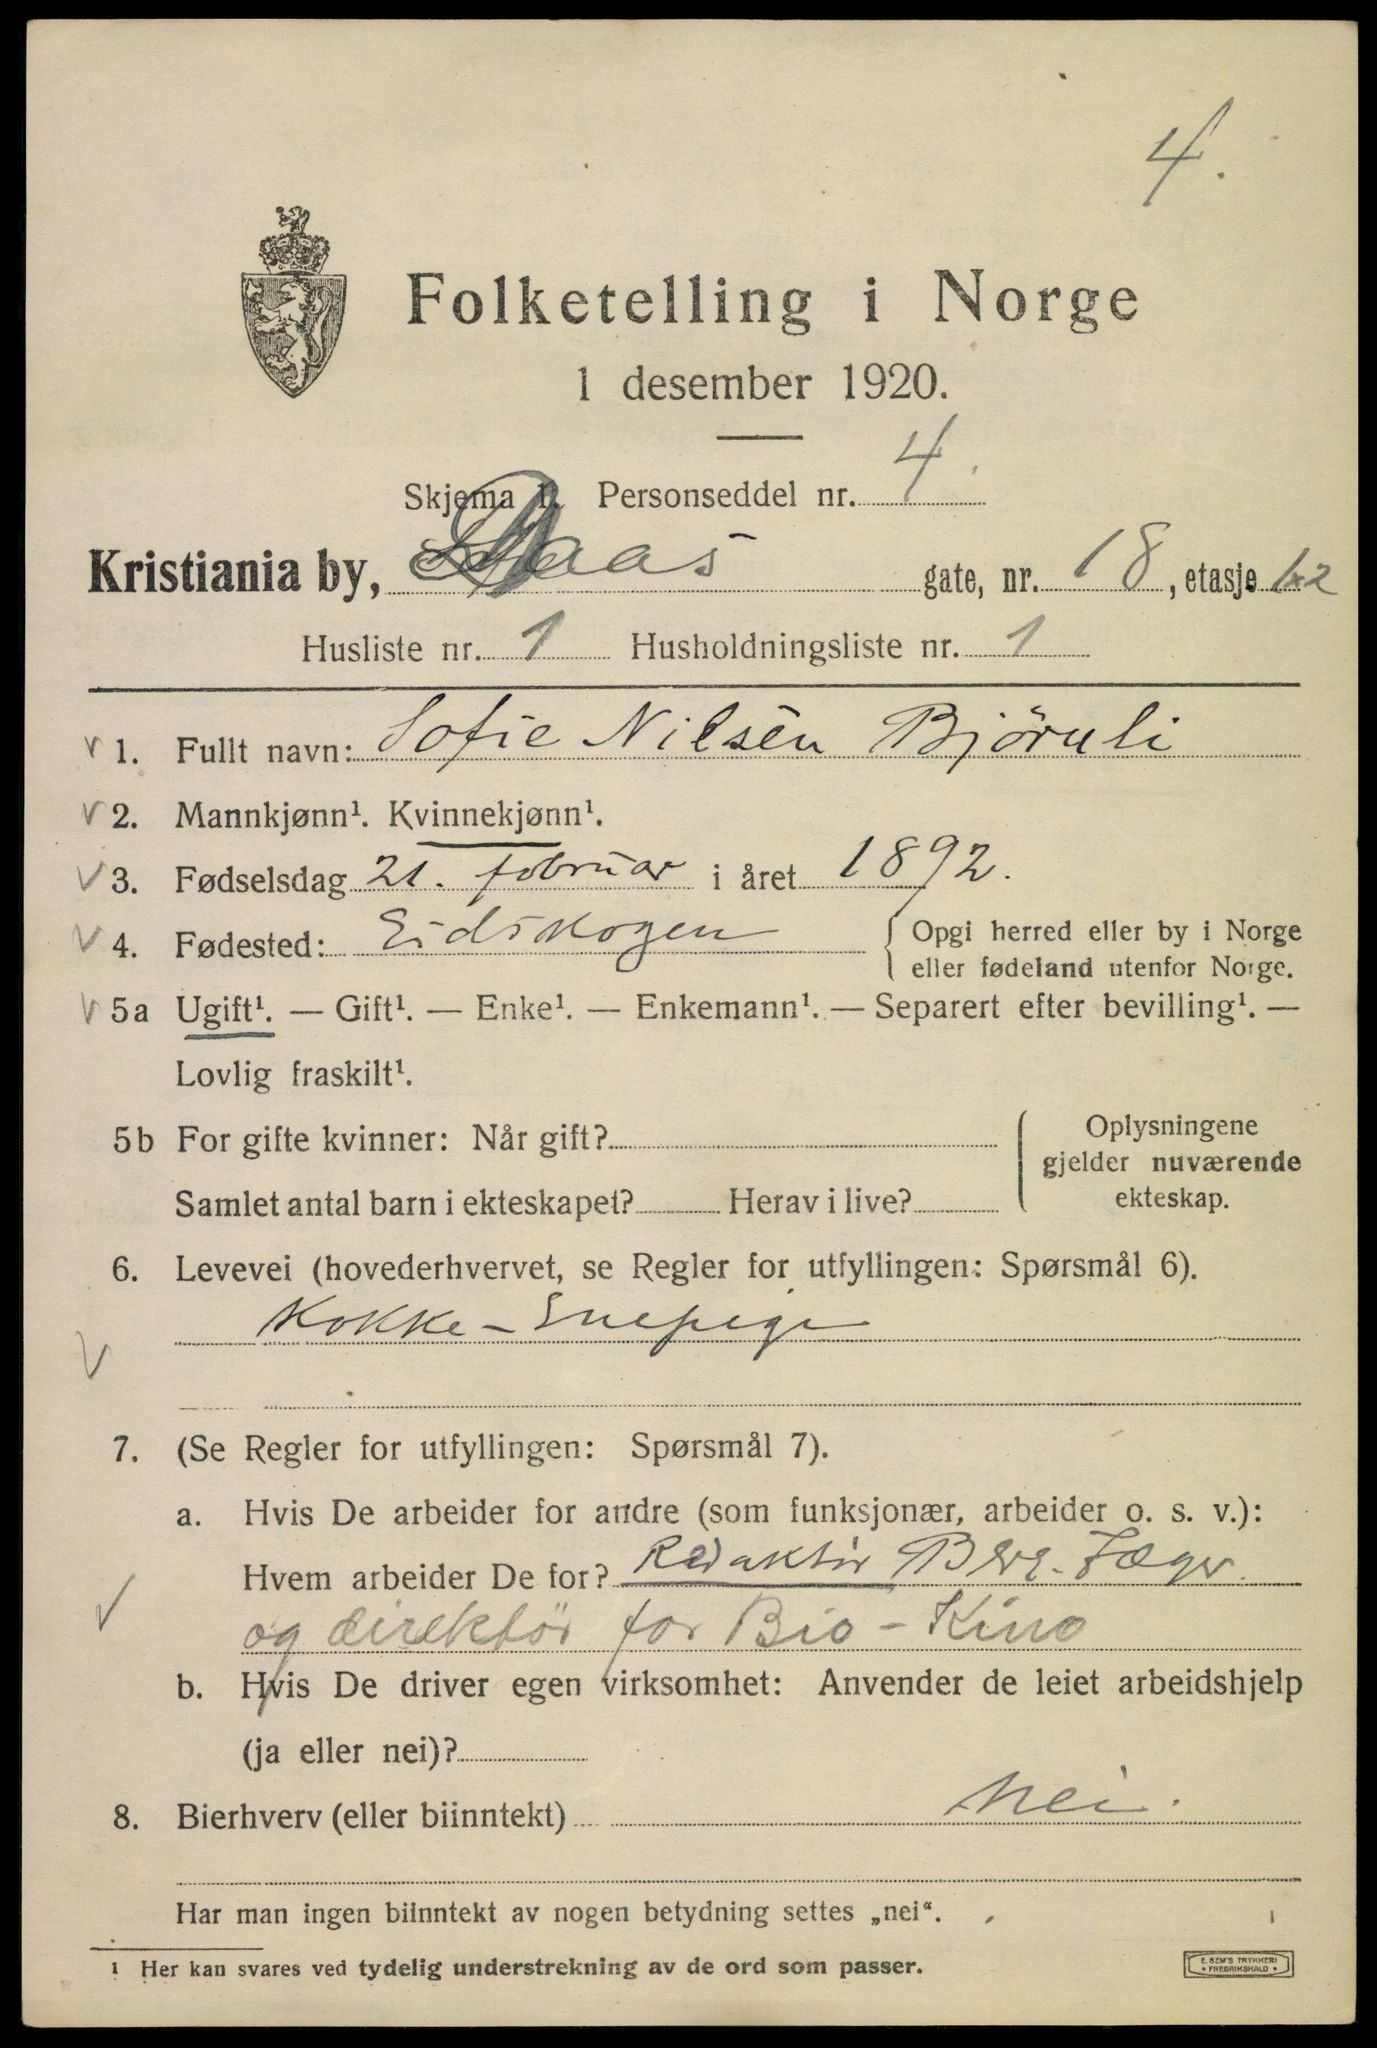 4.
Folketelling i Norge
1 desember 1920.
Skjema 1. Personseddel nr. 4.
Kristiania by, Daas gate, nr. 18, etasje 1 x 2
Husliste nr. 1 Husholdningsliste nr. 1
1. Fullt navn: Sofie Nilsen Björnli
2. Mannkjønn¹. Kvinnekjønn¹.
3. Fødselsdag 21. februar i året 1892.
4. Fødested: Eidskogen { Opgi herred eller by i Norge
eller fødeland utenfor Norge.
5a Ugift¹. — Gift¹. — Enke¹. — Enkemann¹. — Separert efter bevilling¹. —
Lovlig fraskilt¹.
5b For gifte kvinner: Når gift? { Oplysningene
gjelder nuværende
Samlet antal barn i ekteskapet? Herav i live? ekteskap.
6. Levevei (hovederhvervet, se Regler for utfyllingen: Spørsmål 6).
Kokke - Enepige
7. (Se Regler for utfyllingen: Spørsmål 7).
a. Hvis De arbeider for andre (som funksjonær, arbeider o. s. v.):
Hvem arbeider De for? Redaktör Berg-Jæger
og direktör for Bio-Kino
b. Hvis De driver egen virksomhet: Anvender de leiet arbeidshjelp
(ja eller nei)?
8. Bierhverv (eller biinntekt) Nei.
Har man ingen biinntekt av nogen betydning settes „nei“.
¹ Her kan svares ved tydelig understrekning av de ord som passer.
E. SEM'S TRYKKERI
* FREDRIKSHALD *